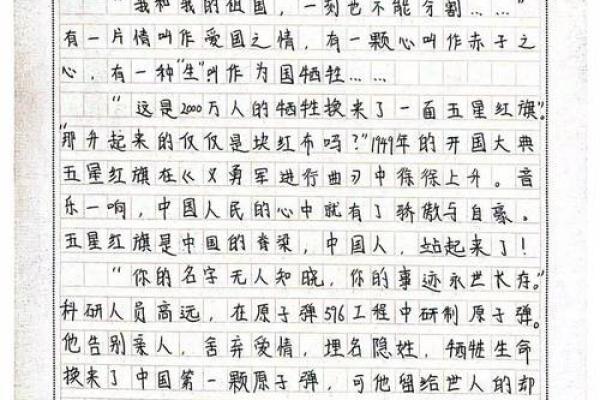 "我和我的祖国，一刻也不能分割……"
有一片情叫作爱国之情，有一颗心叫作赤子之
心，有一种"生"叫作为国牺牲……
"这是2000万人的牺牲换来了一面五星红旗"。
"那升起来的仅仅是块红布吗？"1949年的开国大典
五星红旗在《义勇军进行曲》中徐徐上升。音
乐一响，中国人民的心中就有了骄傲与自豪。
五星红旗是中国的脊梁，中国人，站起来了！
"你的名字无人知晓，你的事迹永世长存。"
科研人员高远，在原子弹596工程中研制原子弹。
他告别亲人，舍弃爱情，埋名隐姓，牺牲生命
换来了中国第一颗原子弹，可他留给世人的却